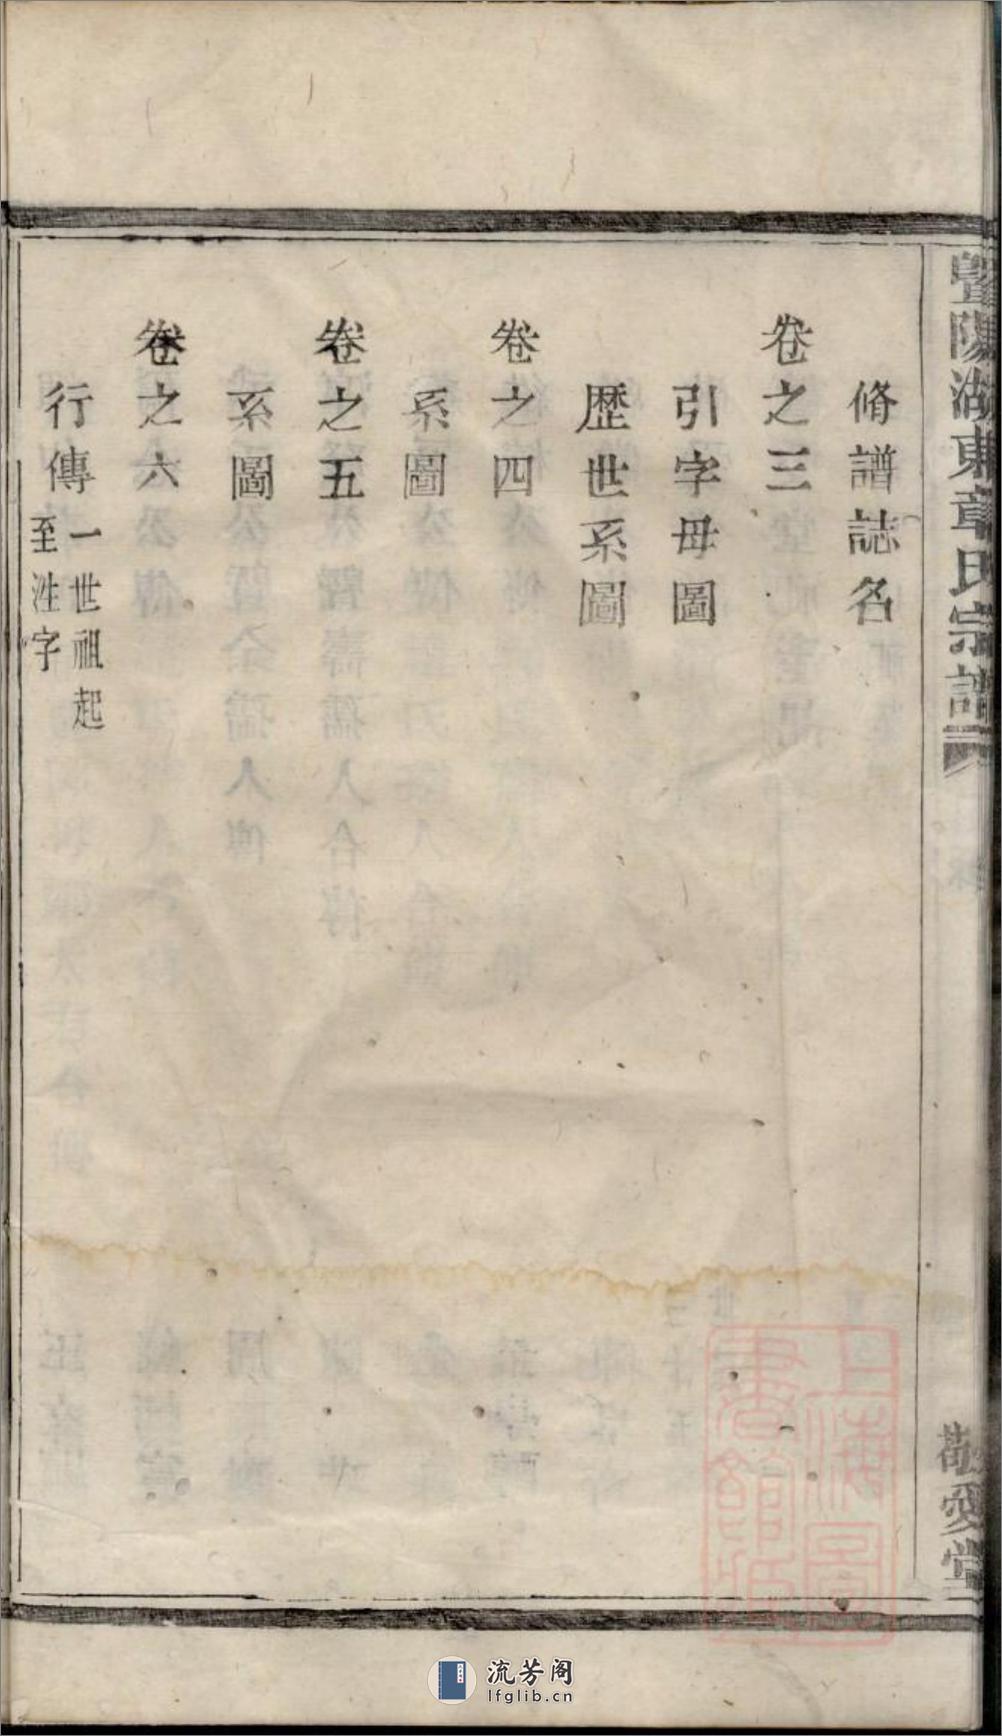 暨陽湖東章氏宗譜
敬愛堂
脩譜誌名
卷之三
引字母圖
歴世系圖
卷之四
系圖
卷之五
系圖
卷之六
行傳
一世祖起
至泩字
上海圖
書館藏
流芳阁
lfglib.cn